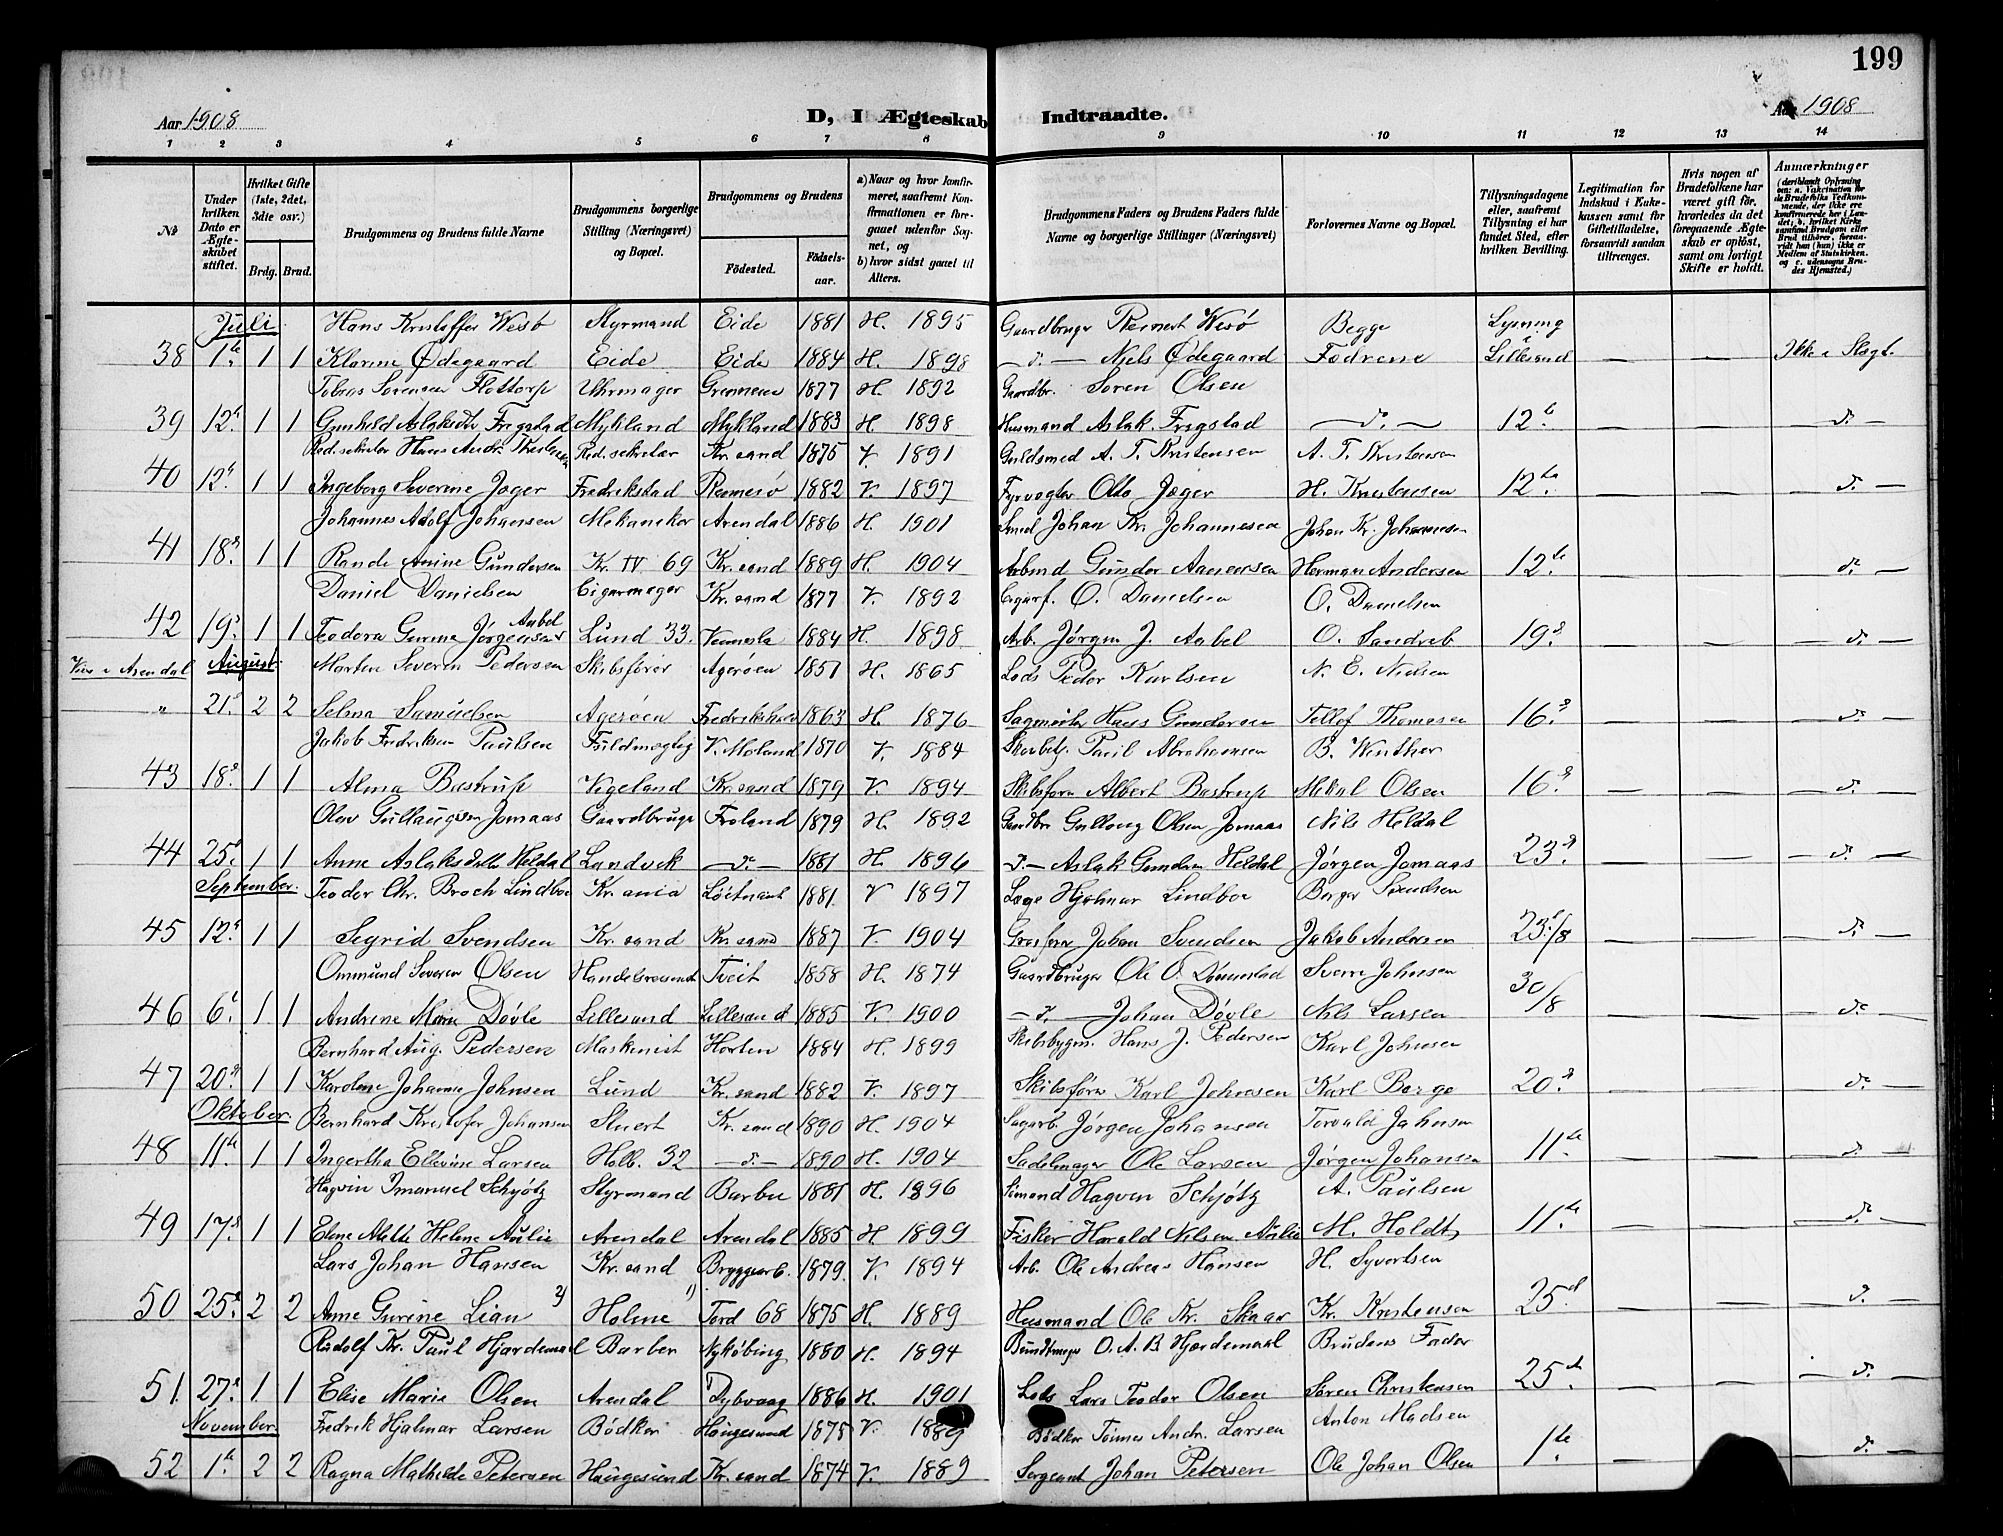 199
Aar 1908
D, I Ægteskab Indtraadte.
Aar 1908
1 2 3 4 5 6 7 8 9 10 11 12 13 14
№
Under hvilken Dato er Ægteskabet stiftet.
Hvilket Gifte (1ste, 2det, 3die osv.)
Brdg. Brud.
Brudgommens og Brudens fulde Navne
Brudgommens borgerlige Stilling (Næringsvei) og Bopæl.
Brudgommens og Brudens
Födested.
Födselsaar.
a) Naar og hvor konfirmeret, saafremt Konfirmationen er foregaaet udenfor Sognet, og
b) hvor sidst gaaet til Alters.
Brudgommens Faders og Brudens Faders fulde Navne og borgerlige Stillinger (Næringsvei)
Forlovernes Navne og Bopæl.
Tillysningsdagene eller, saafremt Tillysning ei har fundet Sted, efter hvilken Bevilling.
Legitimation for Indskud i Enkekassen samt for Giftetilladelse, forsaavidt saadan tiltrænges.
Hvis nogen af Brudefolkene har været gift før, hvorledes da det foregaaende Ægteskab er opløst, samt om lovligt Skifte er holdt.
Anmærkninger
(deriblandt Oplysning om: a. Vakcination for de Brudefolks Vedkommende, der ikke ere konfirmerede her i Landet; b. hvilket Kirkesamfund Brudgom eller Brud tilhører, forsaavidt han (hun) ikke er Medlem af Statskirken, og c. udensogns Brudes Hjemsted.)
Juli Hans Kristoffer Wesø Styrmand Eide 1881 H. 1895 Gaardbruger Reinert Wesø Begge Lysning i
38 1te 1 1 Klarine Ødegaard Eide Eide 1884 H. 1898 — d. — Niels Ødegaard Fødrene Lillesand — — Ikke i Slægt.
Tobias Sørensen Flottorp Uhrmager 1877 H. 1892 Gaardbr. Søren Olsen
39 12te 1 1 Gunhild Aslaksdtr Frigstad Mykland Mykland 1883 H 1898 Husmand Aslak Frigstad — d. — 12te — — d. —
Red. sekretær Kr. sand 1875 V. 1891 Guldsmed A. T. Kristensen A. T. Kristensen
40 12te 1 1 Ingeborg Severine Jæger Fredrikstad 1882 V. 1897 Fyrvogter Otto Jæger H. Kristensen 12te — — d. —
Johannes Adolf Johansen Mekaniker Arendal 1886 H. 1901 Smed Johan Kr. Johannesen Johan Kr. Johannesen
41 18de 1 1 Rande Anine Gundersen Kr. IV 69 Kr. sand 1889 H. 1904 Arbmd Gunder Aanensen Herman Andersen 12te — — d. —
Daniel Danielsen Cigarmager Kr. sand 1877 V. 1892 Cigarf. O. Danielsen O. Danielsen
42 19de 1 1 Teodora Gurine Jørgensen Aabel Lund 33. Vennesla 1884 H. 1898 Arb. Jørgen J. Aabel O. Sandvik 19de — — d. —
Viet i Arendal August Morten Severin Pedersen Skibsfører Agerøen 1851 H. 1865 Lods Peder Karlsen N. E. Nielsen
" 21de 2 2 Selma Samuelsen Agerøen 1863 H. 1876 Sagmester Hans Gundersen Tellef Thomesen 16de — — d. —
Jakob Fredriksen Paulsen Fuldmægtig V. Moland 1870 V. 1884 Paul Abrahamsen B. Winther
43 18de 1 1 Alma Bastrup Vigeland Kr. sand 1879 V. 1894 Skibsfører Albert Bastrup Mikal Olsen 16de — — d. —
Olav Gullaugsen Jomaas Gaardbruger Froland 1879 H. 1892 Gaardbr Gullaug Olsen Jomaas Nils Heldal
44 25de 1 1 Anne Aslaksdatter Heldal Landvik — d. — 1881 H. 1896 d. — Aslak Gundersen Heldal Jørgen Jomaas 23de — — d. —
September. Teodor Chr. Broch Lindboe Kr. ania Løitnant 1881. V 1897 Læge Hjalmar Lindboe Birger Svendsen
45 12te 1 1 Sigrid Svendsen Kr. sand Kr. sand 1887 V. 1904 Johan Svendsen Jakob Andersen 23de/8 — — d. —
Ommund Severin Olsen Tveit 1858 H. 1874 Gaardbruger Ole O. Sven Johnsen
46 6te 1 1 Andrine Marie Døvle Lillesand Lillesand 1885 V. 1900 — d. — Johan Døvle Nils Larsen 30/8 — — d.
Bernhard Aug. Pedersen Maskinist Horten 1884 H. 1899 Skibsbygm. Hans J. Pedersen Karl Johnsen
47 20de 1 1 Karoline Johanne Johnsen Lund Kr. sand 1882 V. 1897 Skibsfører Karl Johnsen Karl Berge 20de — — d. —
Oktober. Bernhard Kristofer Johansen Stuert Kr. sand 1890 H. 1904 Sagarb. Jørgen Johansen Torvald Johnsen
48 11te 1 1 Ingertha Ellevine Larsen Holb. 32 — d. — 1890 H. 1904 Sadelmager Ole Larsen Jørgen Johansen 11te — — d. —
Hagvin Imanuel Schjøtz Styrmand Barbu 1881 H. 1896 Sømand Hagven Schjøtz A. Paulsen
49 17de 1 1 Helene Aulie Arendal Arendal 1885 H 1899 Fisker Harald Nilsen Aulie M. Holdt 11te — — d. —
Lars Johan Hansen Kr. sand Bryggearb. 1879. V. 1894 Arb. Ole Andreas Hansen H. Syvertsen
50 25de 2 2 Anne Gurine Lian 2) Holme 1) Tord 68 1875 H. 1889 Husmand Ole Kr. Skaar Kr. Kristensen 25de — — d. —
Rudolf Kr. Paul Hjardemaal Barber Nykøbing 1880 H. 1894 Bundtmager O. A. B. Hjardemaal Brudens Fader
51 27de 1 1 Elise Marie Olsen Arendal Dybvaag 1886 H. 1901 Lods Lars Teodor Olsen Søren Christensen 25de — — d. —
November. Fredrik Hjalmar Larsen Bødker Haugesund 1875 V. 1889 Bødker Tønnes Andr. Larsen Anton Madsen
52 1te 2 2 Ragna Mathilde Petersen Haugesund Kr. sand 1874 V. 1889 Sergeant Johan Petersen Ole Johan Olsen 1te — — d. —